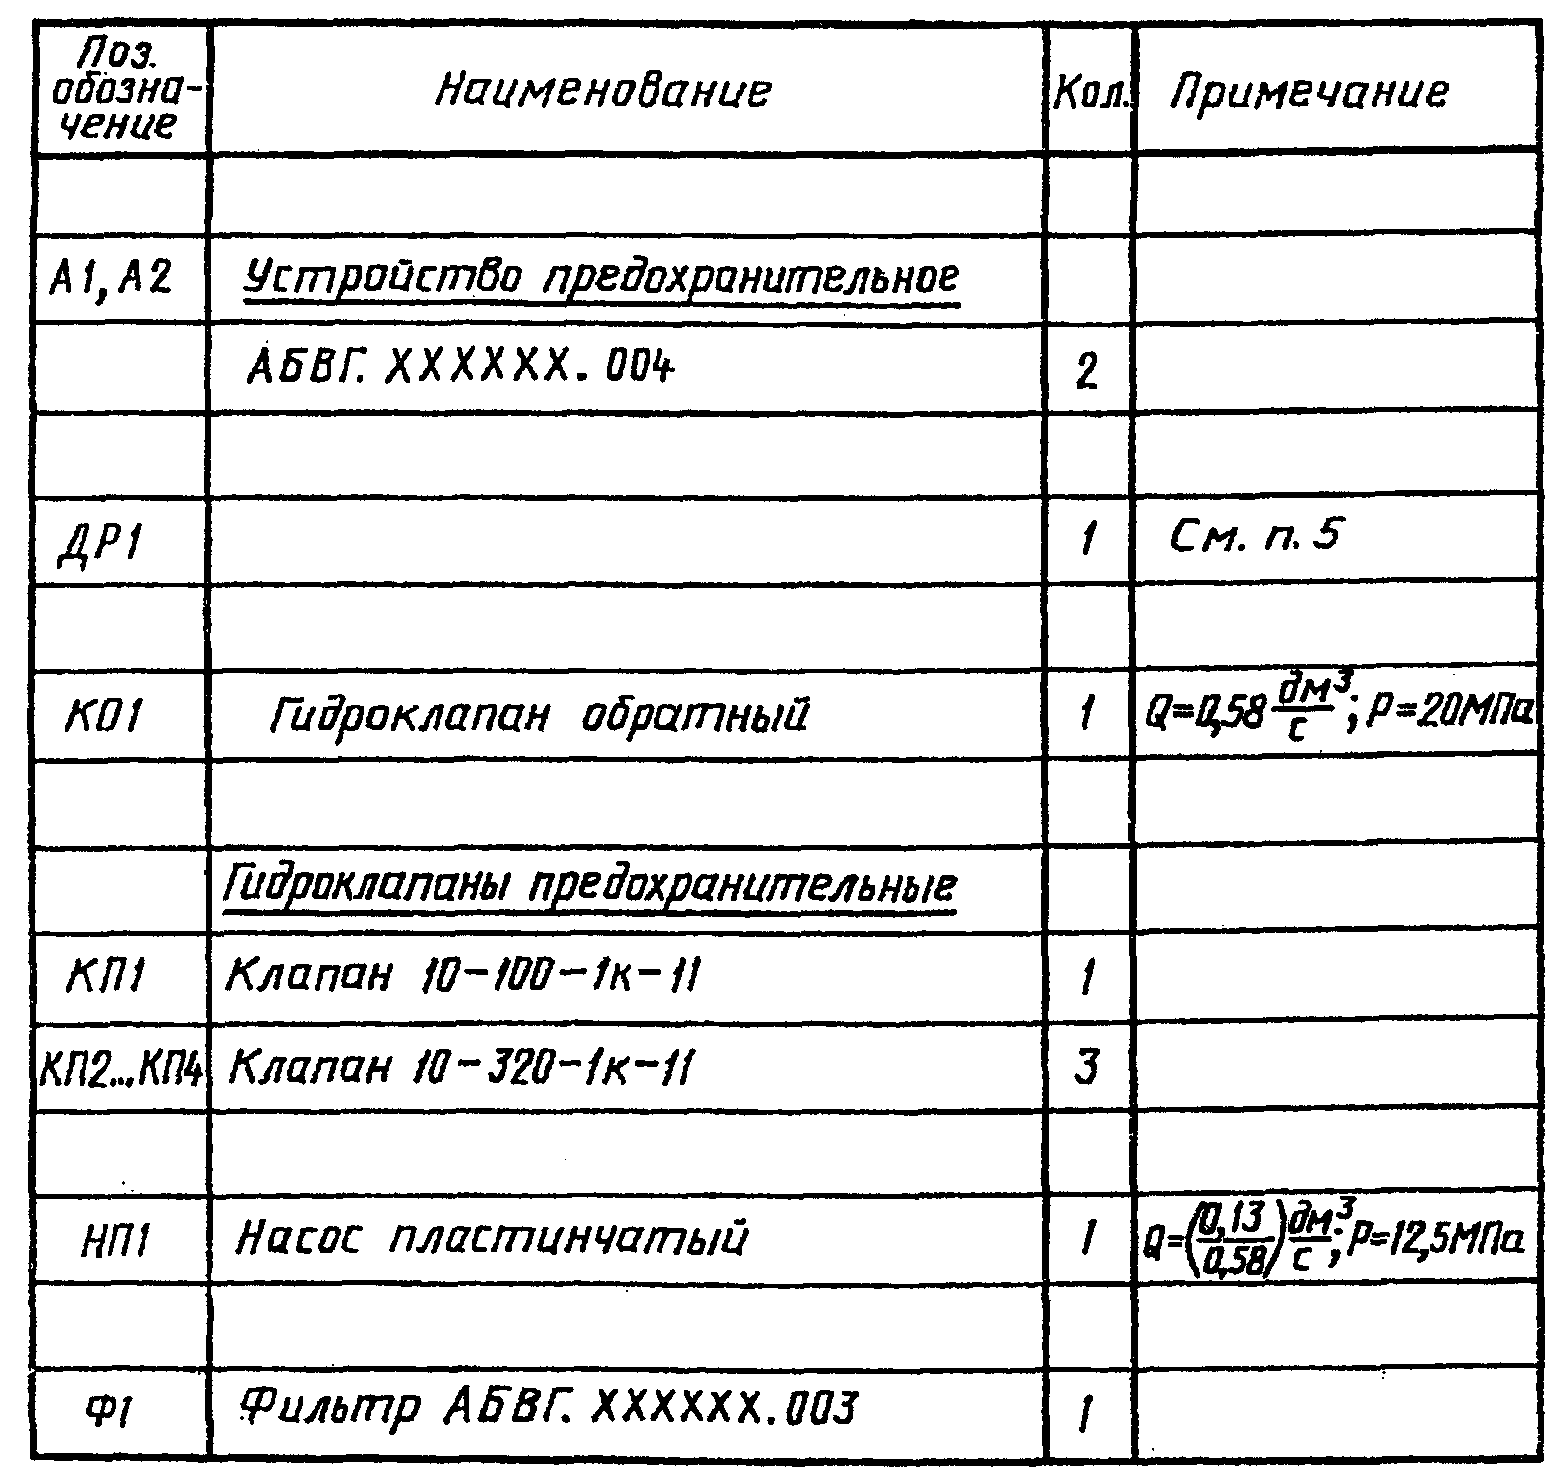 Поз. обозна-чение Наименование Кол. Примечание
А1, А2 Устройство предохранительное
АБВГ. ХХХХХХ. 004 2
ДР1 1 См. п. 5
КО1 Гидроклапан обратный 1 Q=0,58 дм³/с; P=20МПа
Гидроклапаны предохранительные
КП1 Клапан 10-100-1к-11 1
КП2...КП4 Клапан 10-320-1к-11 3
НП1 Насос пластинчатый 1 Q=(0,13/0,58) дм³/с; P=12,5МПа
Ф1 Фильтр АБВГ. ХХХХХХ.003 1